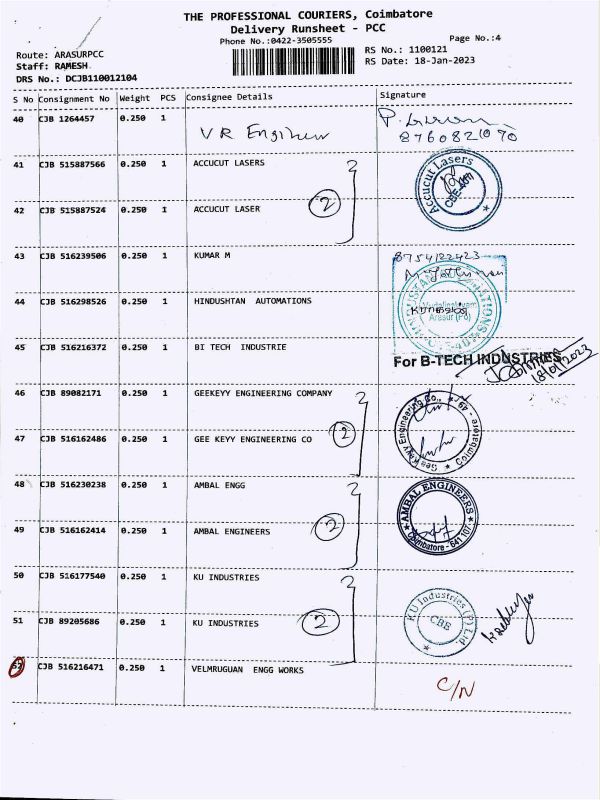 THE PROFESSIONAL COURIERS, Coimbatore
Delivery Runsheet - PCC
Phone No.:0422-3505555
Page No.:4
Route: ARASURPCC
Staff: RAMESH
DRS No.: DCJB110012104
RS No.: 1100121
RS Date: 18-Jan-2023
S No Consignment No Weight PCS Consignee Details Signature
40 CJB 1264457 0.250 1 VR Engineer
8760821070
41 CJB 515887566 0.250 1 ACCUCUT LASERS
Accucut Lasers
2
42 CJB 515887524 0.250 1 ACCUCUT LASER
43 CJB 516239506 0.250 1 KUMAR M
8754122423
44 CJB 516298526 0.250 1 HINDUSHTAN AUTOMATIONS
Arasur (Po)
45 CJB 516216372 0.250 1 BI TECH INDUSTRIE
For B-TECH INDUSTRIES
18/01/2023
46 CJB 89082171 0.250 1 GEEKEYY ENGINEERING COMPANY
2
Gee Keyy Engineering Co., Coimbatore - 49
47 CJB 516162486 0.250 1 GEE KEYY ENGINEERING CO
48 CJB 516230238 0.250 1 AMBAL ENGG
AMBAL ENGINEERS
Coimbatore - 641 107
2
49 CJB 516162414 0.250 1 AMBAL ENGINEERS
50 CJB 516177540 0.250 1 KU INDUSTRIES
KU Industries (P) Ltd
CBE
2
51 CJB 89205686 0.250 1 KU INDUSTRIES
52 CJB 516216471 0.250 1 VELMRUGUAN ENGG WORKS
C/N